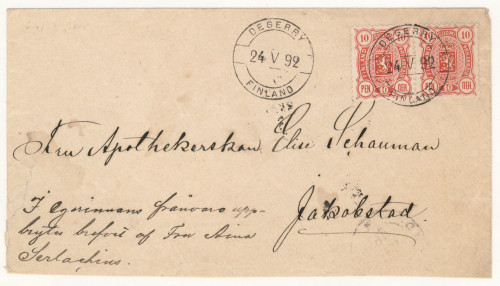 DEGERBY
24 V 92
FINLAND
10 10
PEN. 10 PEN.
DEGERBY
24 V 92
FINLAND
Fru Apothekerskan Elise Schauman
Jakobstad.
I egarinnans frånvaro upp-
brytes brefvet af Fru Aina
Serlachius.